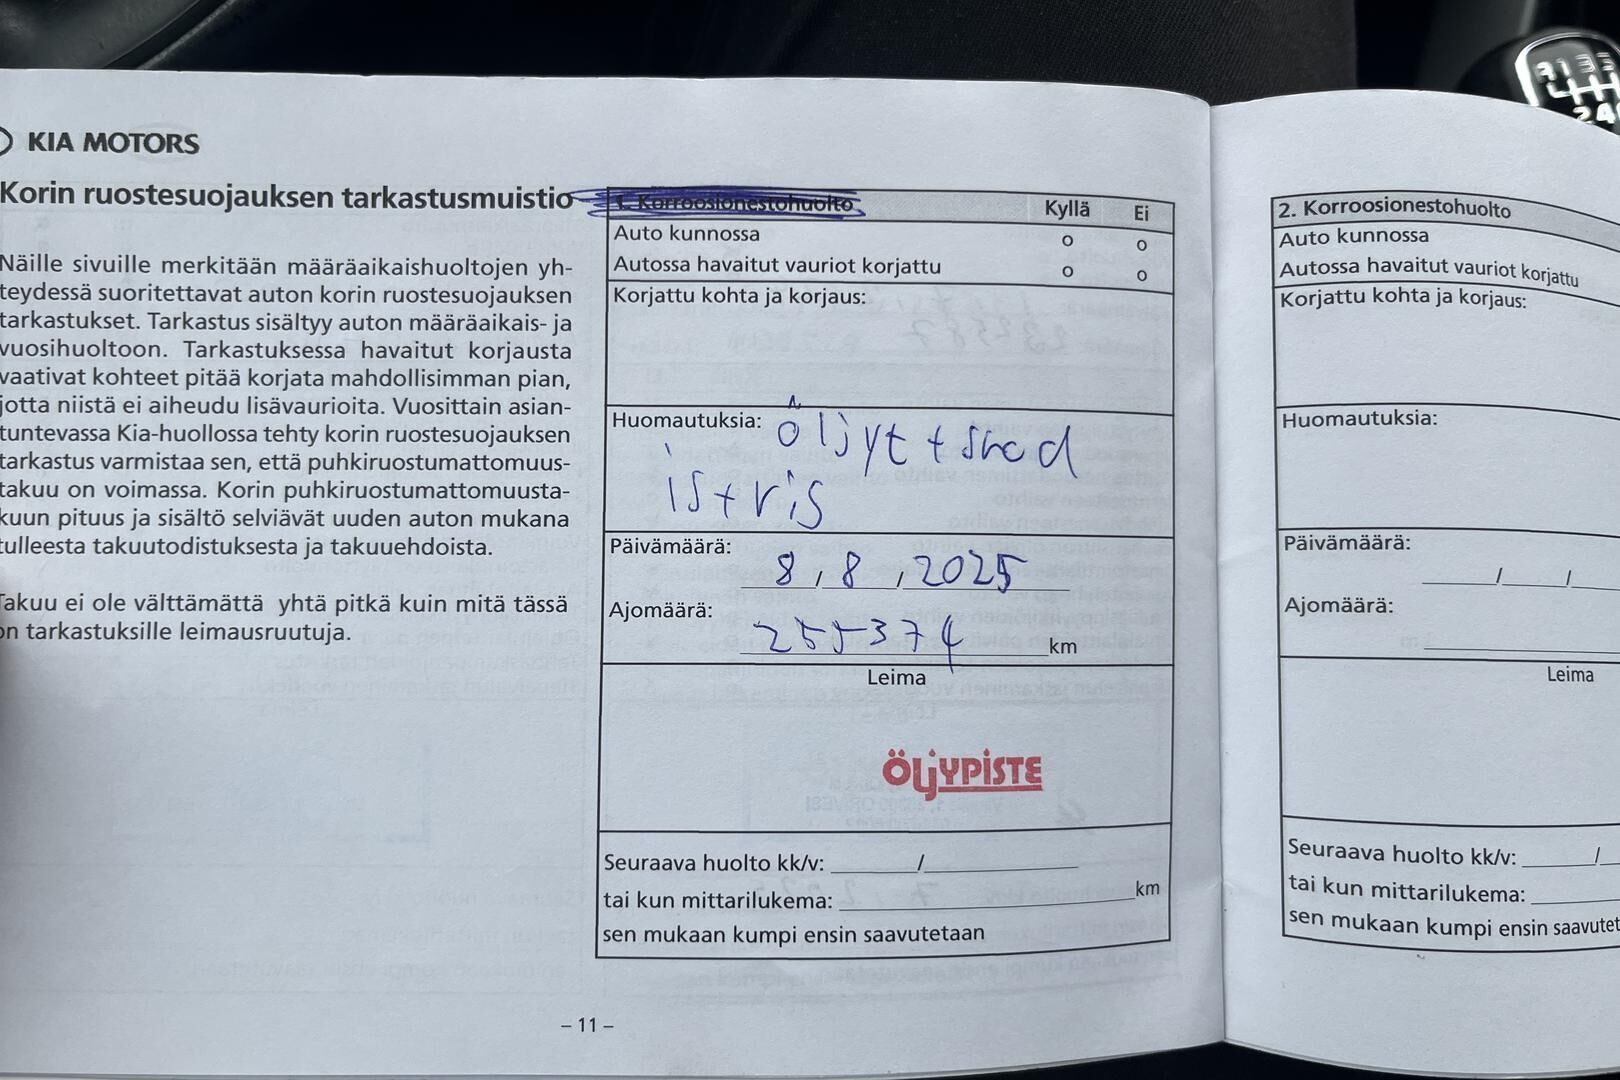 KIA MOTORS
Korin ruostesuojauksen tarkastusmuistio
Näille sivuille merkitään määräaikaishuoltojen yh-
teydessä suoritettavat auton korin ruostesuojauksen
tarkastukset. Tarkastus sisältyy auton määräaikais- ja
vuosihuoltoon. Tarkastuksessa havaitut korjausta
vaativat kohteet pitää korjata mahdollisimman pian,
jotta niistä ei aiheudu lisävaurioita. Vuosittain asian-
tuntevassa Kia-huollossa tehty korin ruostesuojauksen
tarkastus varmistaa sen, että puhkiruostumattomuus-
takuu on voimassa. Korin puhkiruostumattomuusta-
kuun pituus ja sisältö selviävät uuden auton mukana
tulleesta takuutodistuksesta ja takuuehdoista.
Takuu ei ole välttämättä yhtä pitkä kuin mitä tässä
on tarkastuksille leimausruutuja.
1. Korroosionestohuolto Kyllä Ei
Auto kunnossa o o
Autossa havaitut vauriot korjattu o o
Korjattu kohta ja korjaus:
Huomautuksia: öljyt +
Päivämäärä: 8, 8, 2025
Ajomäärä: 255374 km
Leima
ÖLjYPiSTE
Seuraava huolto kk/v: ____/____
tai kun mittarilukema: ____ km
sen mukaan kumpi ensin saavutetaan
– 11 –
2. Korroosionestohuolto
Auto kunnossa
Autossa havaitut vauriot korjattu
Korjattu kohta ja korjaus:
Huomautuksia:
Päivämäärä:
____/____/
Ajomäärä:
Leima
Seuraava huolto kk/v: ____/
tai kun mittarilukema:
sen mukaan kumpi ensin saavutet